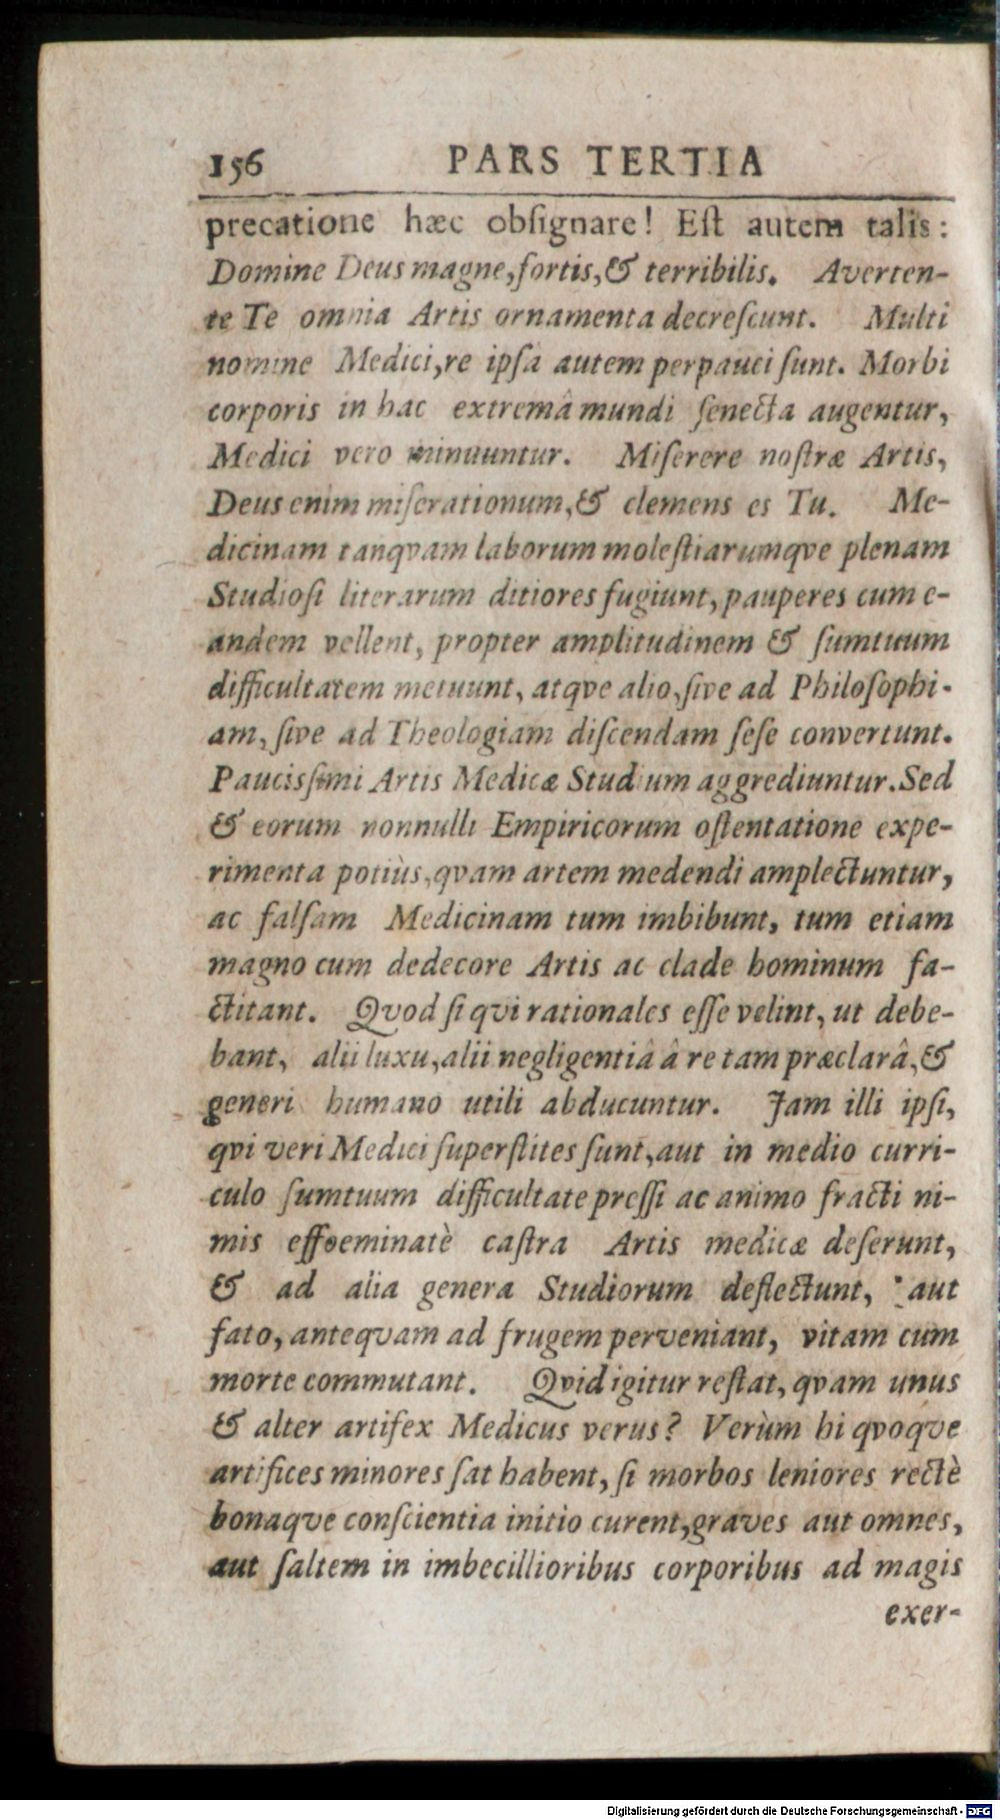 156 PARS TERTIA
precatione hæc obſignare! Eſt autem talis:
Domine Deus magne, fortis, & terribilis. Averten-
te Te omnia Artis ornamenta decreſcunt. Multi
nomine Medici, re ipſa autem perpauci ſunt. Morbi
corporis in hac extremâ mundi ſenecta augentur,
Medici vero minuuntur. Miſerere noſtræ Artis,
Deus enim miſerationum, & clemens es Tu. Me-
dicinam tanqvam laborum moleſtiarumqve plenam
Studioſi literarum ditiores fugiunt, pauperes cum e-
andem vellent, propter amplitudinem & ſumtuum
difficultatem metuunt, atqve alio, ſive ad Philoſophi-
am, ſive ad Theologiam diſcendam ſeſe convertunt.
Paucisſimi Artis Medicæ Studium aggrediuntur. Sed
& eorum nonnulli Empiricorum oſtentatione expe-
rimenta potiùs, qvam artem medendi amplectuntur,
ac falſam Medicinam tum imbibunt, tum etiam
magno cum dedecore Artis ac clade hominum fa-
ctitant. Qvod ſi qvi rationales eſſe velint, ut debe-
bant, alii luxu, alii negligentiâ â re tam præclarâ, &
generi humano utili abducuntur. Jam illi ipſi,
qvi veri Medici ſuperſtites ſunt, aut in medio curri-
culo ſumtuum difficultate preſſi ac animo fracti ni-
mis effoeminatè caſtra Artis medicæ deſerunt,
& ad alia genera Studiorum deflectunt, aut
fato, anteqvam ad frugem perveniant, vitam cum
morte commutant. Qvid igitur reſtat, qvam unus
& alter artifex Medicus verus? Verùm hi qvoqve
artifices minores ſat habent, ſi morbos leniores rectè
bonaqve conſcientia initio curent, graves aut omnes,
aut ſaltem in imbecillioribus corporibus ad magis
exer-
Digitalisierung gefördert durch die Deutsche Forschungsgemeinschaft - DFG